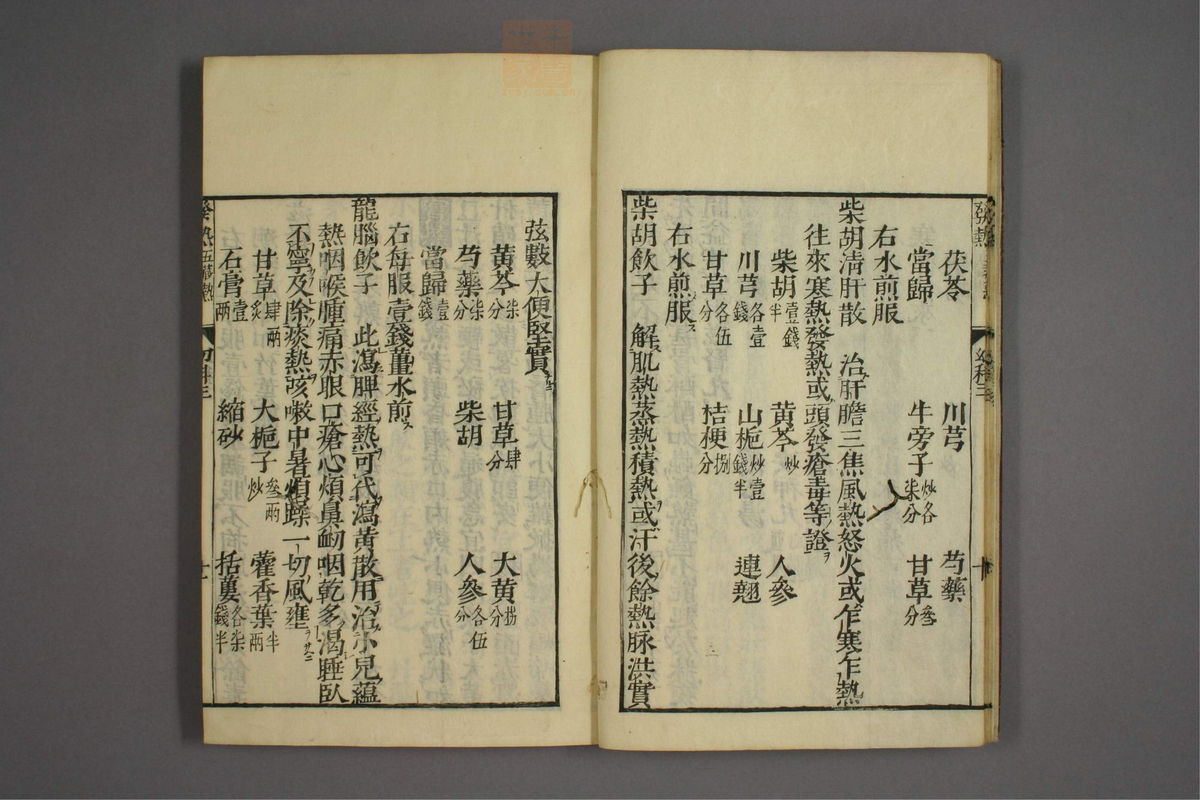 茯苓　川芎　芍藥
當歸　牛旁子炒各柒分　甘草叁分
右水煎服
柴胡清肝散　治肝膽三焦風熱怒火或乍寒乍熱
往來寒熱發熱或頭發瘡毒等證
柴胡壹錢半　黃芩炒　人參
川芎各壹錢　山梔炒壹錢半　連翹
甘草各伍分　桔梗捌分
右水煎服
柴胡飲子　解肌熱蒸熱積熱或汗後餘熱脉洪實
弦數大便堅實
黃芩柒分　甘草肆分　大黃捌分
芍藥柒分　柴胡　人參各伍分
當歸壹錢
右每服壹錢薑水煎
龍腦飲子　此瀉脾經熱可代瀉黃散用治小兒蘊
熱咽喉腫痛赤眼口瘡心煩鼻衂咽乾多渴睡臥
不寧及除痰熱咳嗽中暑煩躁一切風壅
甘草肆兩炙　大梔子叁兩炒　藿香葉半兩
石膏壹兩　縮砂　括蔞各柒錢半